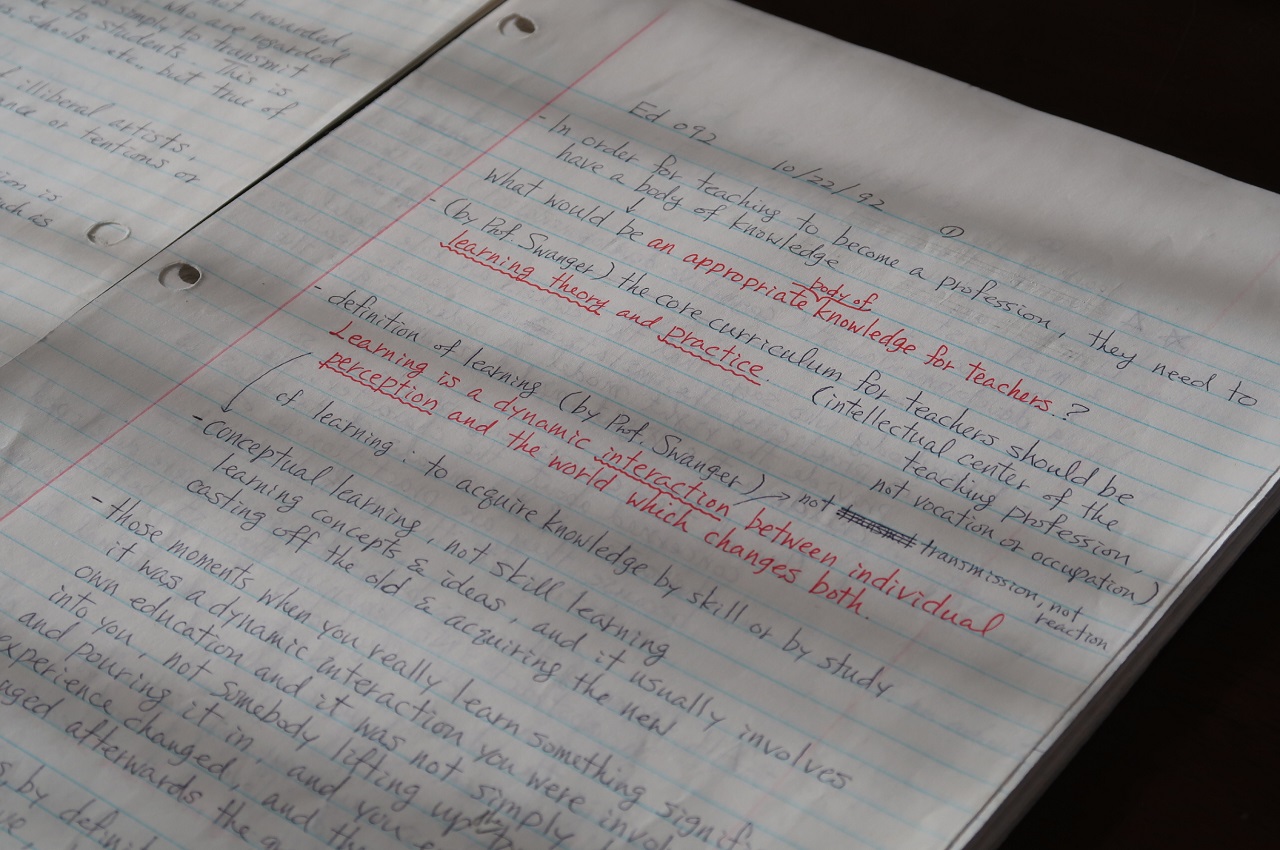 not rewarded,
who are regarded
simply to transmit
to students. This is
schools. etc. but true of
illiberal artists,
or tentions or
is
such as
Ed 092 10/22/92 ①
- In order for teaching to become a profession, they need to
have a body of knowledge
↓
What would be an appropriate body of knowledge for teachers.?
- (by Prof. Swanger) the core curriculum for teachers should be
learning theory and practice. (intellectual center of the
teaching profession,
not vocation or occupation)
- definition of learning (by Prof. Swanger) → not transmission, not
reaction
Learning is a dynamic interaction between individual
perception and the world which changes both.
of learning : to acquire knowledge by skill or by study
- conceptual learning, not skill learning
learning concepts & ideas, and it usually involves
casting off the old & acquiring the new
- those moments when you really learn something signif
it was a dynamic interaction you were invol
own education and it was not simply
into you, not somebody lifting up
and pouring it in, and you
experience changed, and th
afterwards the
by defini